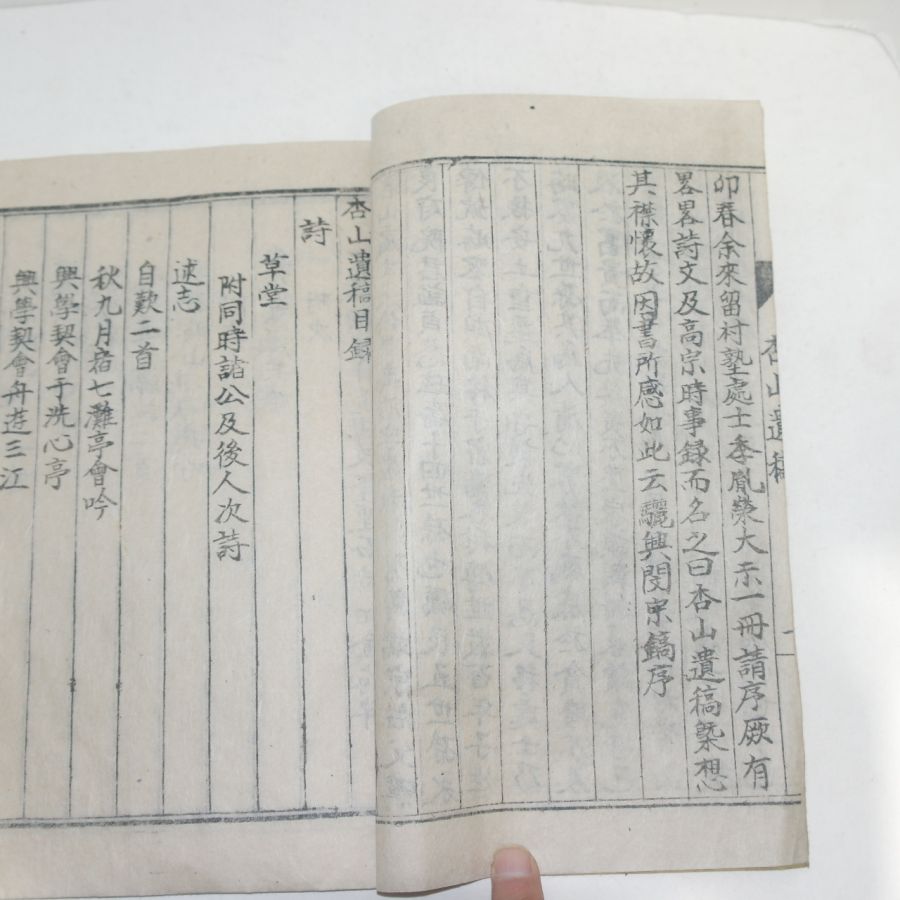 杏山遺稿
一
卯春余來留村塾處士季胤榮大示一冊請序厥有
畧畧詩文及高宗時事録而名之曰杏山遺稿槩想
其襟懷故因書所感如此云驪興閔泳鎬序
杏山遺稿目録
詩
草堂
附同時諸公及後人次詩
述志
自歎二首
秋九月宿七灘亭會吟
興學契會于洗心亭
興學契會舟遊三江